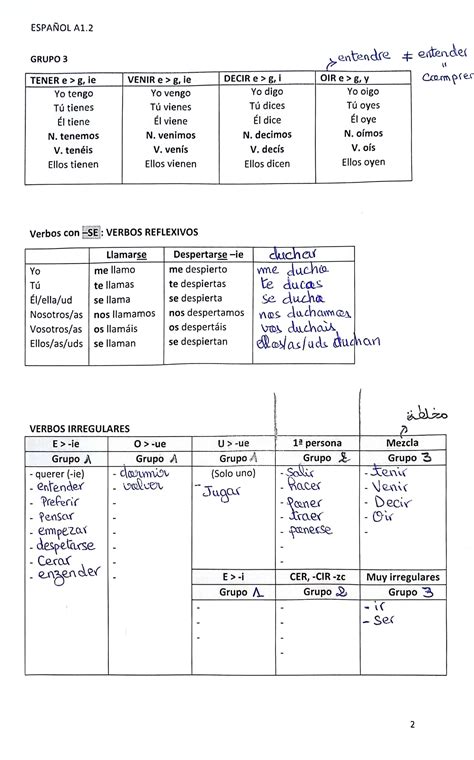 ESPAÑOL A1.2
entendre ≠ entender
"
Comprer
GRUPO 3
TENER e > g, ie VENIR e > g, ie DECIR e > g, i OIR e > g, y
Yo tengo Yo vengo Yo digo Yo oigo
Tú tienes Tú vienes Tú dices Tú oyes
Él tiene Él viene Él dice Él oye
N. tenemos N. venimos N. decimos N. oímos
V. tenéis V. venís V. decís V. oís
Ellos tienen Ellos vienen Ellos dicen Ellos oyen
Verbos con –SE : VERBOS REFLEXIVOS
Llamarse Despertarse –ie duchar
Yo me llamo me despierto me ducho
Tú te llamas te despiertas te ducas
Él/ella/ud se llama se despierta se ducha
Nosotros/as nos llamamos nos despertamos nos duchamos
Vosotros/as os llamáis os despertáis vos duchais
Ellos/as/uds se llaman se despiertan ellos/as/uds duchan
VERBOS IRREGULARES
E > -ie O > -ue U > -ue 1ª persona Mezcla
Grupo 1 Grupo 1 Grupo 1 Grupo 2 Grupo 3
- querer (-ie) - dormir (Solo uno) - Salir - tenir
- entender - volver - Jugar - Hacer - Venir
- Preferir - - Poner - Decir
- Pensar - - traer - Oir
- empezar - - ponerse -
- despetarse - -
- Cerar - -
- enzender - E > -i CER, -CIR -zc Muy irregulares
Grupo 1 Grupo 2 Grupo 3
- - - ir
- - - Ser
- -
-
2